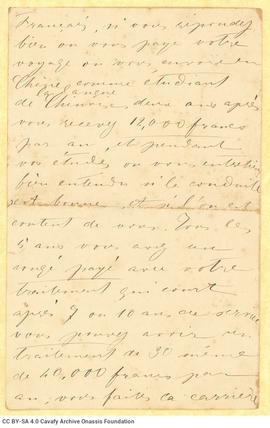 Français, si vous répondez
bien on vous paye votre
voyage on vous envoie en
Chine comme étudiant
la langue
de Chinoise, deux ans après
vous recevez 12,000 francs
par an, et pendant
vos études on vous entretien
bien entendu si la conduite
est bonne et si l'on est
content de vous. Tous les
5 ans vous avez un
congé payé avec votre
traitement qui court
après 7 ou 10 ans de service
vous pouvez avoir un
traitement de 30 même
de 40,000 francs par
an; vous faites ca carrière
CC BY-SA 4.0 Cavafy Archive Onassis Foundation